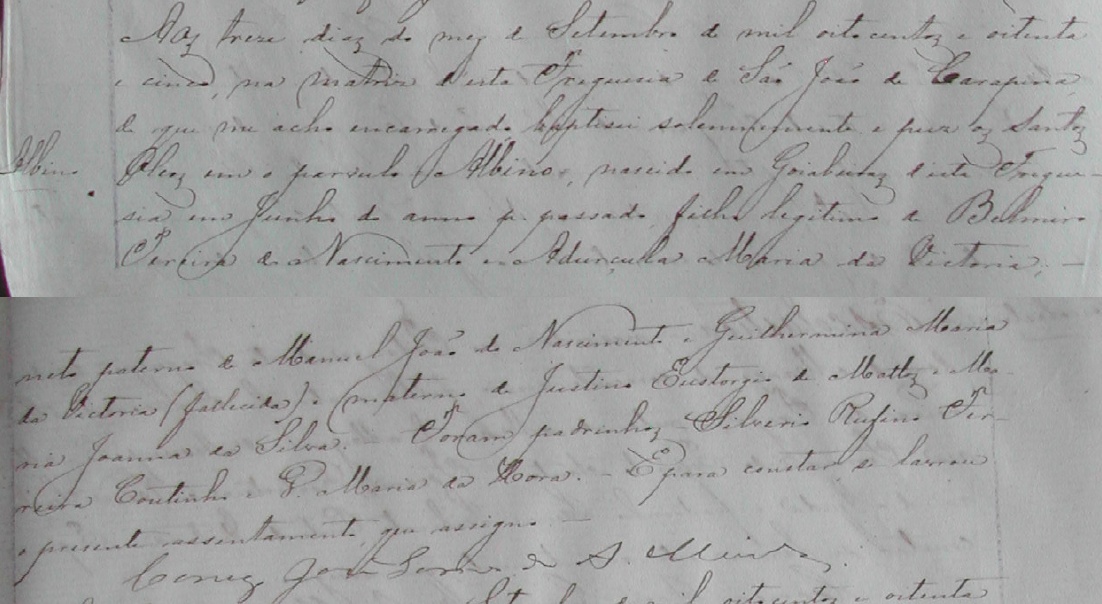 Aos treze dias do mez de Setembro de mil oitocentos e oitenta
e cinco, na matriz d'esta Freguesia de São João de Carapina,
de que me acho encarregado baptisei solemnemente e puz os Santos
Albino
Oleos em o parvulo Albino, nascido em Goiabeiras d'esta Fregue-
sia em Junho do anno p. passado, filho legitimo de Belmiro
Pereira do Nascimento e Maria da Victoria,
neto paterno de Manuel João do Nascimento e Guilhermina Maria
da Victoria (fallecida) e materno de Justino Eustorgio de Mattos e Ma-
ria Joanna da Silva. Foram padrinhos Silverio Rufino Fer-
reira Coutinho e P. Maria da Hora. - E para constar se lavrou
o presente assentamento, que assigno. -
Conego José
Setembro de mil oitocentos e oitenta